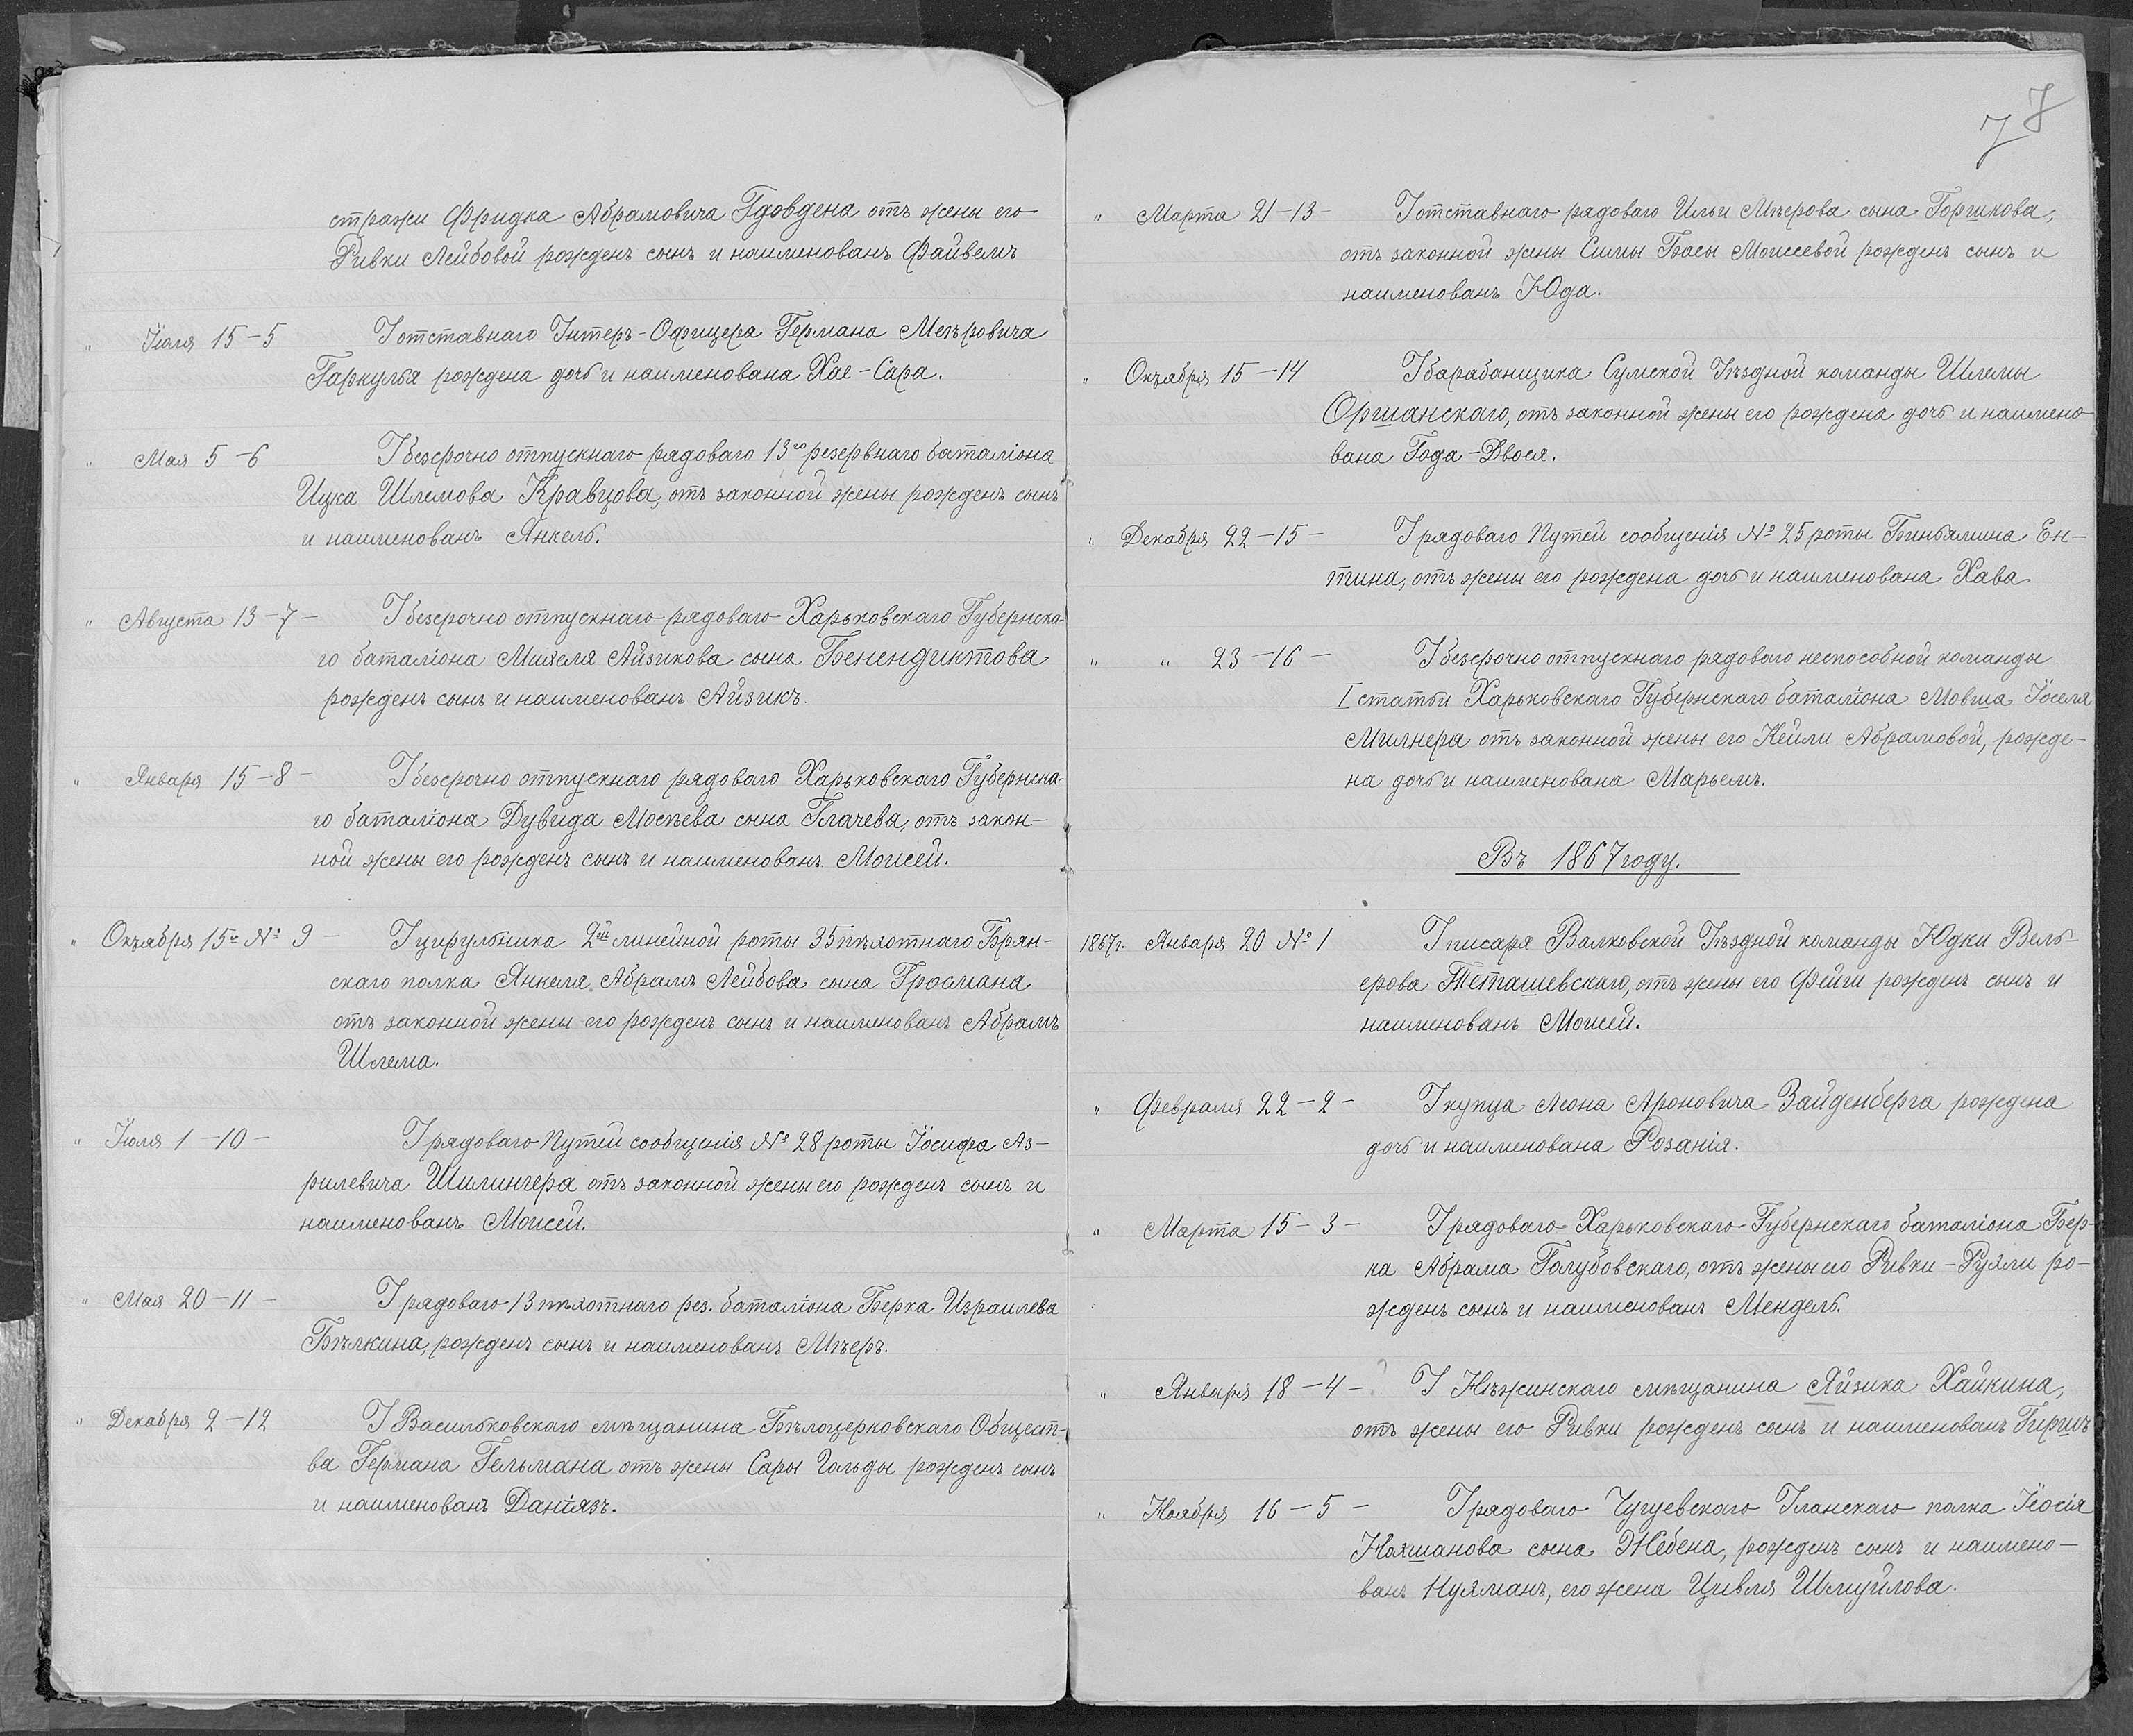 стражи Фридка Абрамовича Удовдена отъ жены его
Ривки Лейбовой рожденъ сынъ и наименованъ Файвелъ
" Іюля 15-5 У отставнаго Унтеръ-Офицера Германа Меѣровича
Гаркуля рождена дочь и наименована Хае-Сара.
" Мая 5-6 У безсрочно отпускнаго рядоваго 13го резервнаго баталіона
Ицка Шлемова Кравцова, отъ законной жены рожденъ сынъ
и наименованъ Янкель.
" Августа 13-7- У безсрочно отпускнаго рядоваго Харьковскаго Губернска-
го баталіона Михеля Айзикова сына Бенендиктова
рожденъ сынъ и наименованъ Айзикъ.
" Января 15-8- У безсрочно отпускнаго рядоваго Харьковскаго Губернска-
го баталіона Дувида Мосѣева сына Глачева, отъ закон-
ной жены его рожденъ сынъ и наименованъ Моисей.
" Октября 15го № 9- У цирульника 2ой линейной роты 35 пѣхотнаго Брян-
скаго полка Янкеля Абрамъ Лейбова сына Гросмана
отъ законной жены его рожденъ сынъ и наименованъ Абрамъ
Шлема.
" Іюля 1-10- У рядоваго Путей сообщенія № 28 роты Іосифа Аз-
рилевича Шилингера отъ законной жены его рожденъ сынъ и
наименованъ Моисей.
" Мая 20-11- У рядоваго 13 пѣхотнаго рез. баталіона Берка Израилева
Бѣлкина, рожденъ сынъ и наименованъ Мѣеръ.
" Декабря 2-12 У Васильковскаго мѣщанина Бѣлоцерковскаго Общест-
ва Германа Гельмана отъ жены Сары Гольды рожденъ сынъ
и наименованъ
7 7
" Марта 21-13- У отставнаго рядоваго Ильи Мѣерова сына Горшкова,
отъ законной жены Симы Басы Моисеевой рожденъ сынъ и
наименованъ Юда.
" Октября 15-14 У барабанщика Сумской Уѣздной команды Шлемы
Оршанскаго, отъ законной жены его рождена дочь и наимено-
вана Года-Двося.
" Декабря 22-15- У рядоваго Путей сообщенія № 25 роты Биньямина Ен-
тина, отъ жены его рождена дочь и наименована Хава
" " 23-16- У безсрочно отпускнаго рядоваго неспособной команды
I статьи Харьковскаго Губернскаго баталіона Мовша Іоселя
Милнера отъ законной жены его Кейли Абрамовой, рожде-
на дочь и наименована Марьемъ.
Въ 1867 году.
1867г. Января 20 № 1 У писаря Валковской Уѣздной команды Юдки Вель-
ерова Теташевскаго, отъ жены его Фейги рожденъ сынъ и
наименованъ Моисей.
" Февраля 22-2- У купца Леона Ароновича Зайденберга рождена
дочь и наименована Розанія.
" Марта 15-3- У рядоваго Харьковскаго Губернскаго баталіона Бер-
ка Абрама Голубовскаго, отъ жены его Ривки-Рухли ро-
жденъ сынъ и наименованъ Мендель.
" Января 18-4- ? У Нѣжинскаго мѣщанина Айзика Хайкина,
отъ жены его Ривки рожденъ сынъ и наименованъ Гиршъ
" Ноября 16-5- У рядоваго Чугуевскаго Уланскаго полка
сына Жебена, рожденъ сынъ и наимено-
ванъ Нухманъ, его жена Цивля Шмуйлова.